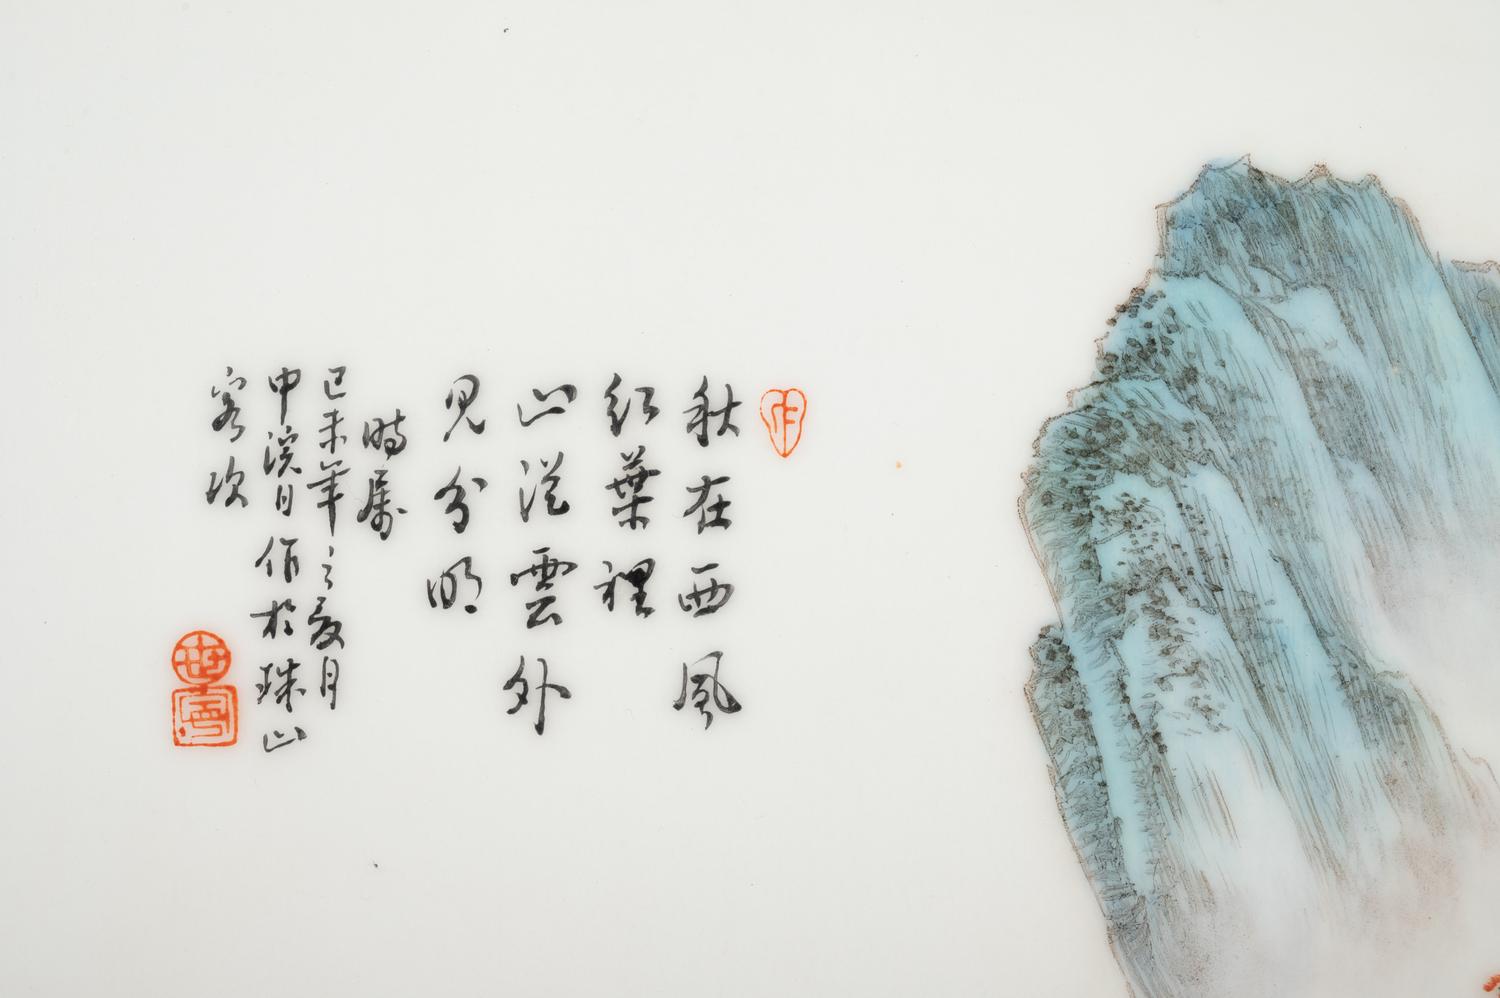 秋在西風
紅葉裡
山從雲外
見分明
時屬
己未年之夏月
甲溪日作於珠山
客次